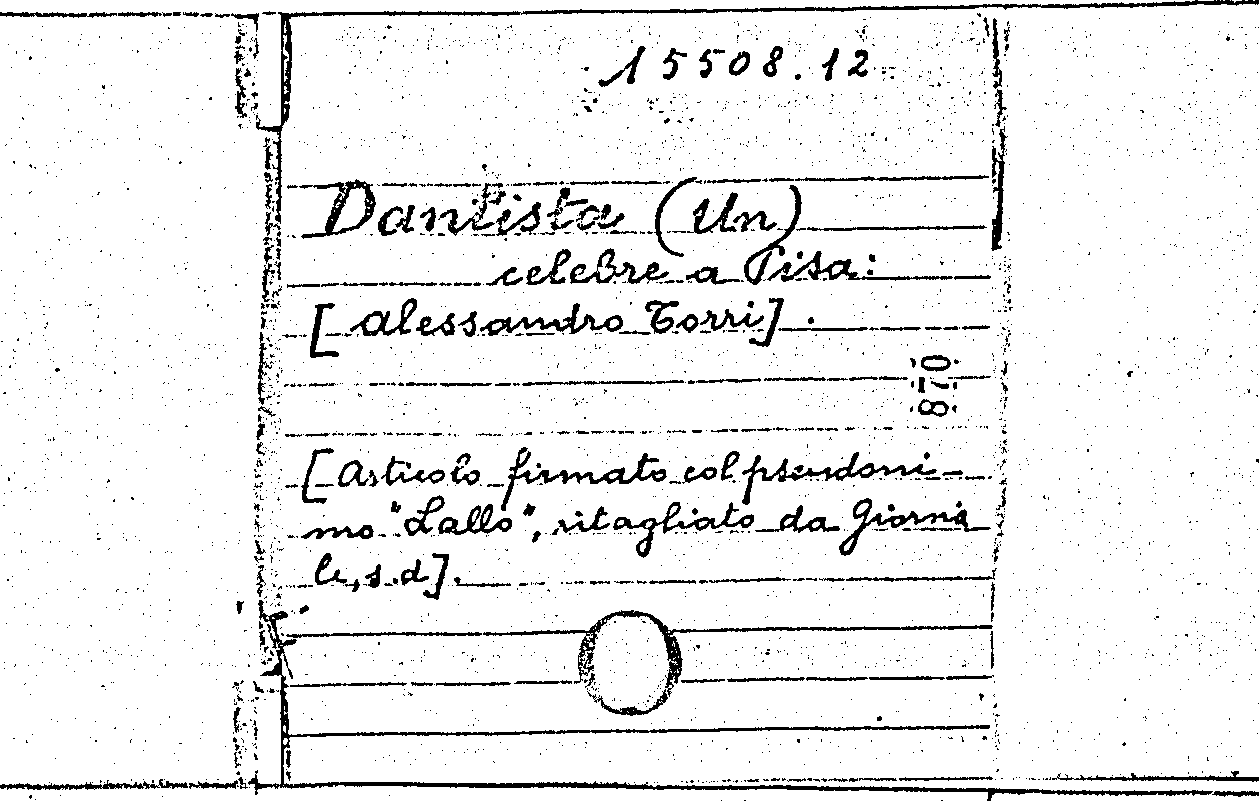 15508.12
Dantista (Un)
celebre a Pisa:
[Alessandro Torri].
870
[Articolo firmato col pseudoni-
mo "Lallo", ritagliato da Giorna
le, s.d].